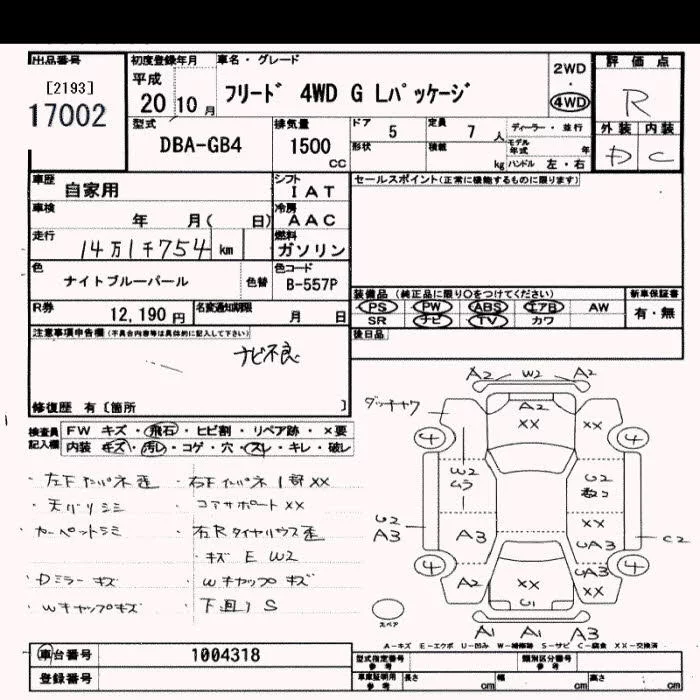 出品番号
[2193]
17002
初度登録年月
平成
20 10 月
車名・グレード
フリード 4WD G Lパッケージ
2WD
・
4WD
評価点
R
型式
DBA-GB4
排気量
1500
CC
ドア
5
定員
7 人
ディーラー・並行
形状
積載
kg
モデル年式
年
ハンドル 左・右
外装 内装
D C
車歴
自家用
シフト
IAT
セールスポイント(正常に機能するものに限ります)
車検
年 月( 日)
冷房
AAC
走行
14万1千754 km
燃料
ガソリン
色
ナイトブルーパール
色替
色コード
B-557P
装備品 (純正品に限り○をつけてください)
PS PW ABS エアB AW
SR ナビ TV カワ
新車保証書
有・無
R券
12,190 円
名変通知期限
月 日
後日品
注意事項申告欄 (不具合内容等は具体的に記入して下さい)
ナビ不良
修復歴 有〔箇所 〕
検査員
記入欄
FW キズ・飛石・ヒビ割・リペア跡・×要
内装 キズ・汚レ・コゲ・穴・スレ・キレ・破レ
・左下インパネ歪
・右下インパネ1部XX
・天バリシミ
・コアサポートXX
・カーペットシミ
・右Rタイヤハウス歪
・キズ E W2
・Dミラーキズ
・Wキャップキズ
・Wキャップキズ
・下廻りS
A2 W2 A2
A2
XX
XX
4
4
W2
ムラ
U2
XX
U2
A3
A3
UA3
C2
4
4
A2
XX
U1
UA3
XX
スペア
A1 A1 A3
A-キズ E-エクボ U-凹み W-補修跡 S-サビ C-腐食 XX-交換済
車台番号
1004318
登録番号
型式指定番号
参考
類別区分番号
参考
車庫証明用
参考
長さ
cm
幅
cm
高さ
cm